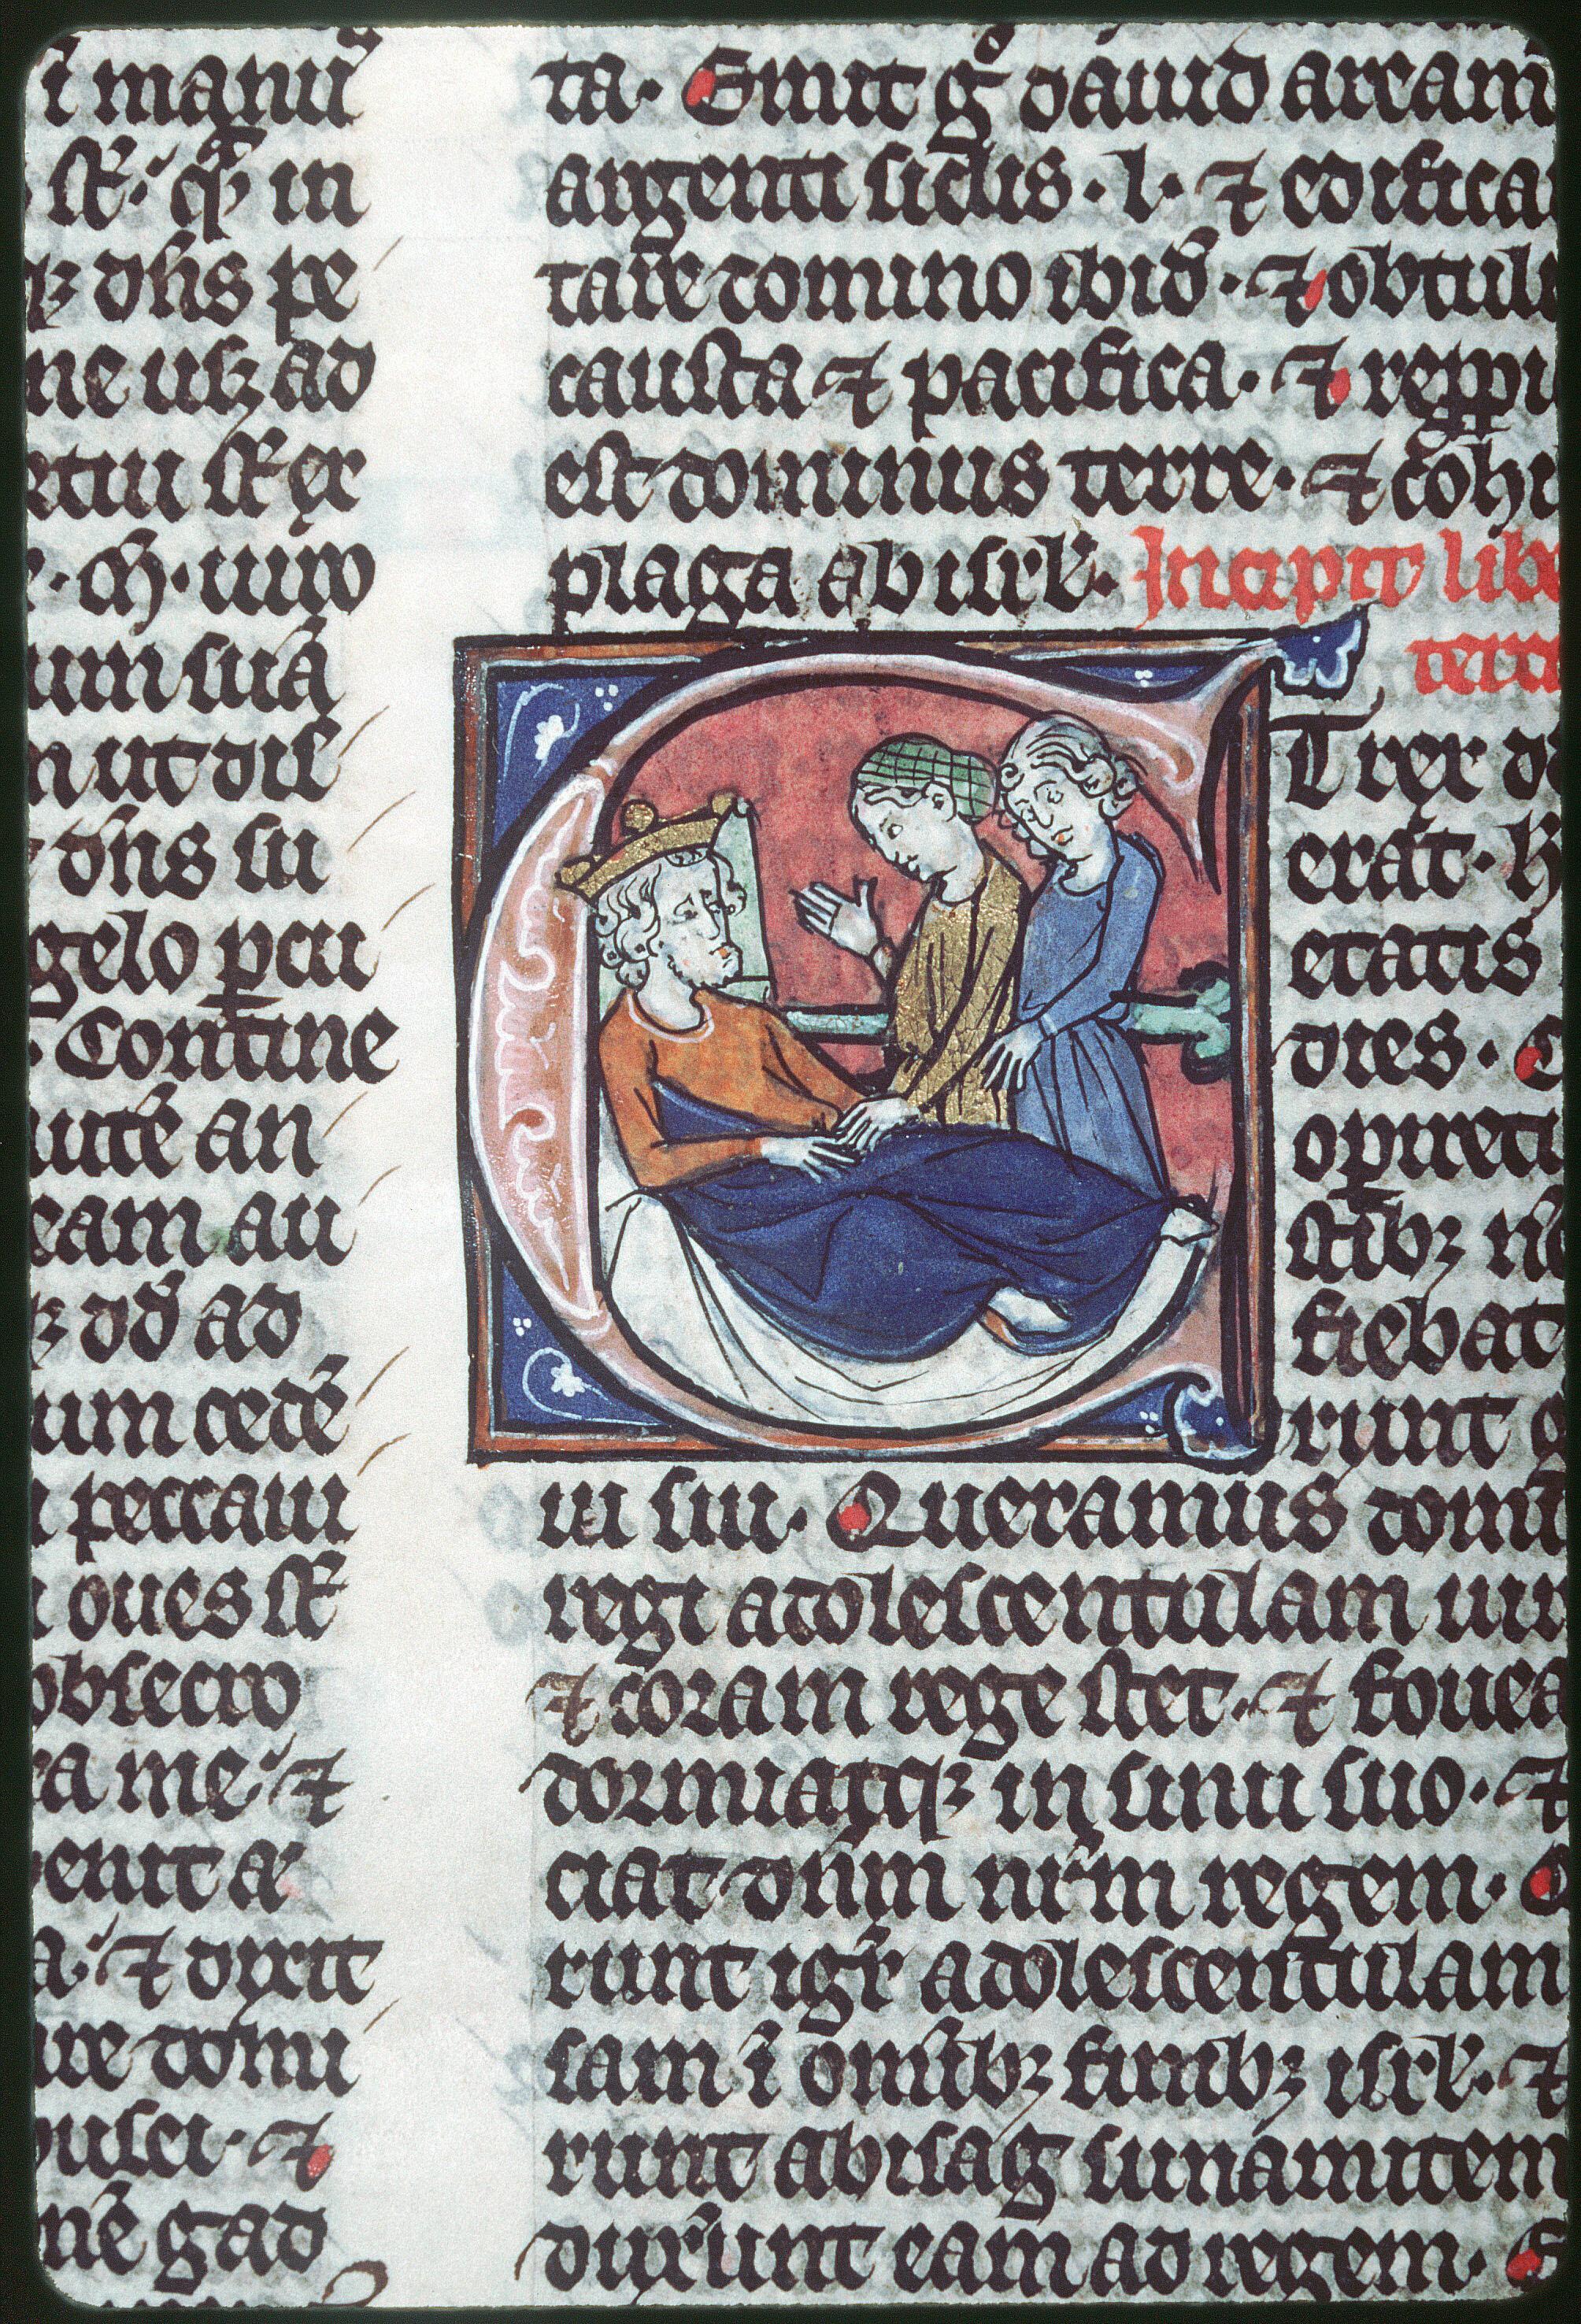 i manu᷒
st̅. q̅ in
ꝫ dn̅s pe
ne usꝫ ad
st̅ ex
um suā
n ut dis
dn̅s su
gelo ꝑcu
Contine
autē an
eam au
ꝫ dd̅ ad
um cedē
peccaui
oues st̅
obsecro
a me. ⁊
enit a
a. ⁊ dixit
re domi
busei. ⁊
nē gad
ta. Emit gͦ dauid aream
argenti siclis. l. ⁊ edifica
tare domino ibid̅. ⁊ obtuli
causta ⁊ pacifica. ⁊ reppi
est dominus terre. ⁊ cohi
plaga ab isrl̅. Incipit lib
terti
Et rex d
erat. h
etatis
dies. C
opiret
stibꝫ n
fiebat
runt g
ui sui. Queramus domi
regi adolescentulam uir
⁊ coram rege stet. ⁊ fouea
dormiatqꝫ in sinu suo. ⁊
ciat dn̅m nr̅m regem. Q
runt igr̅ adolescentulam
sam ī omībꝫ finibꝫ isrl̅. ⁊
runt abisag sunamitem
dixer̅unt eam ad regem. E